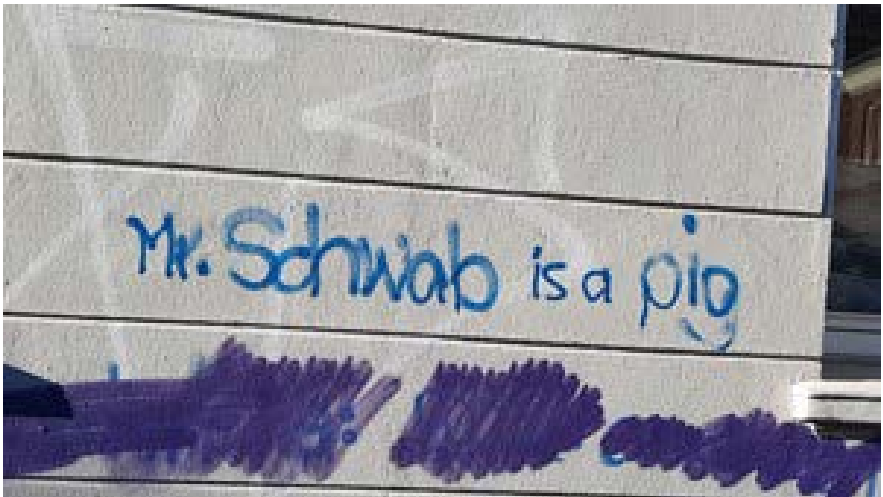 Mr. Schwab is a pig